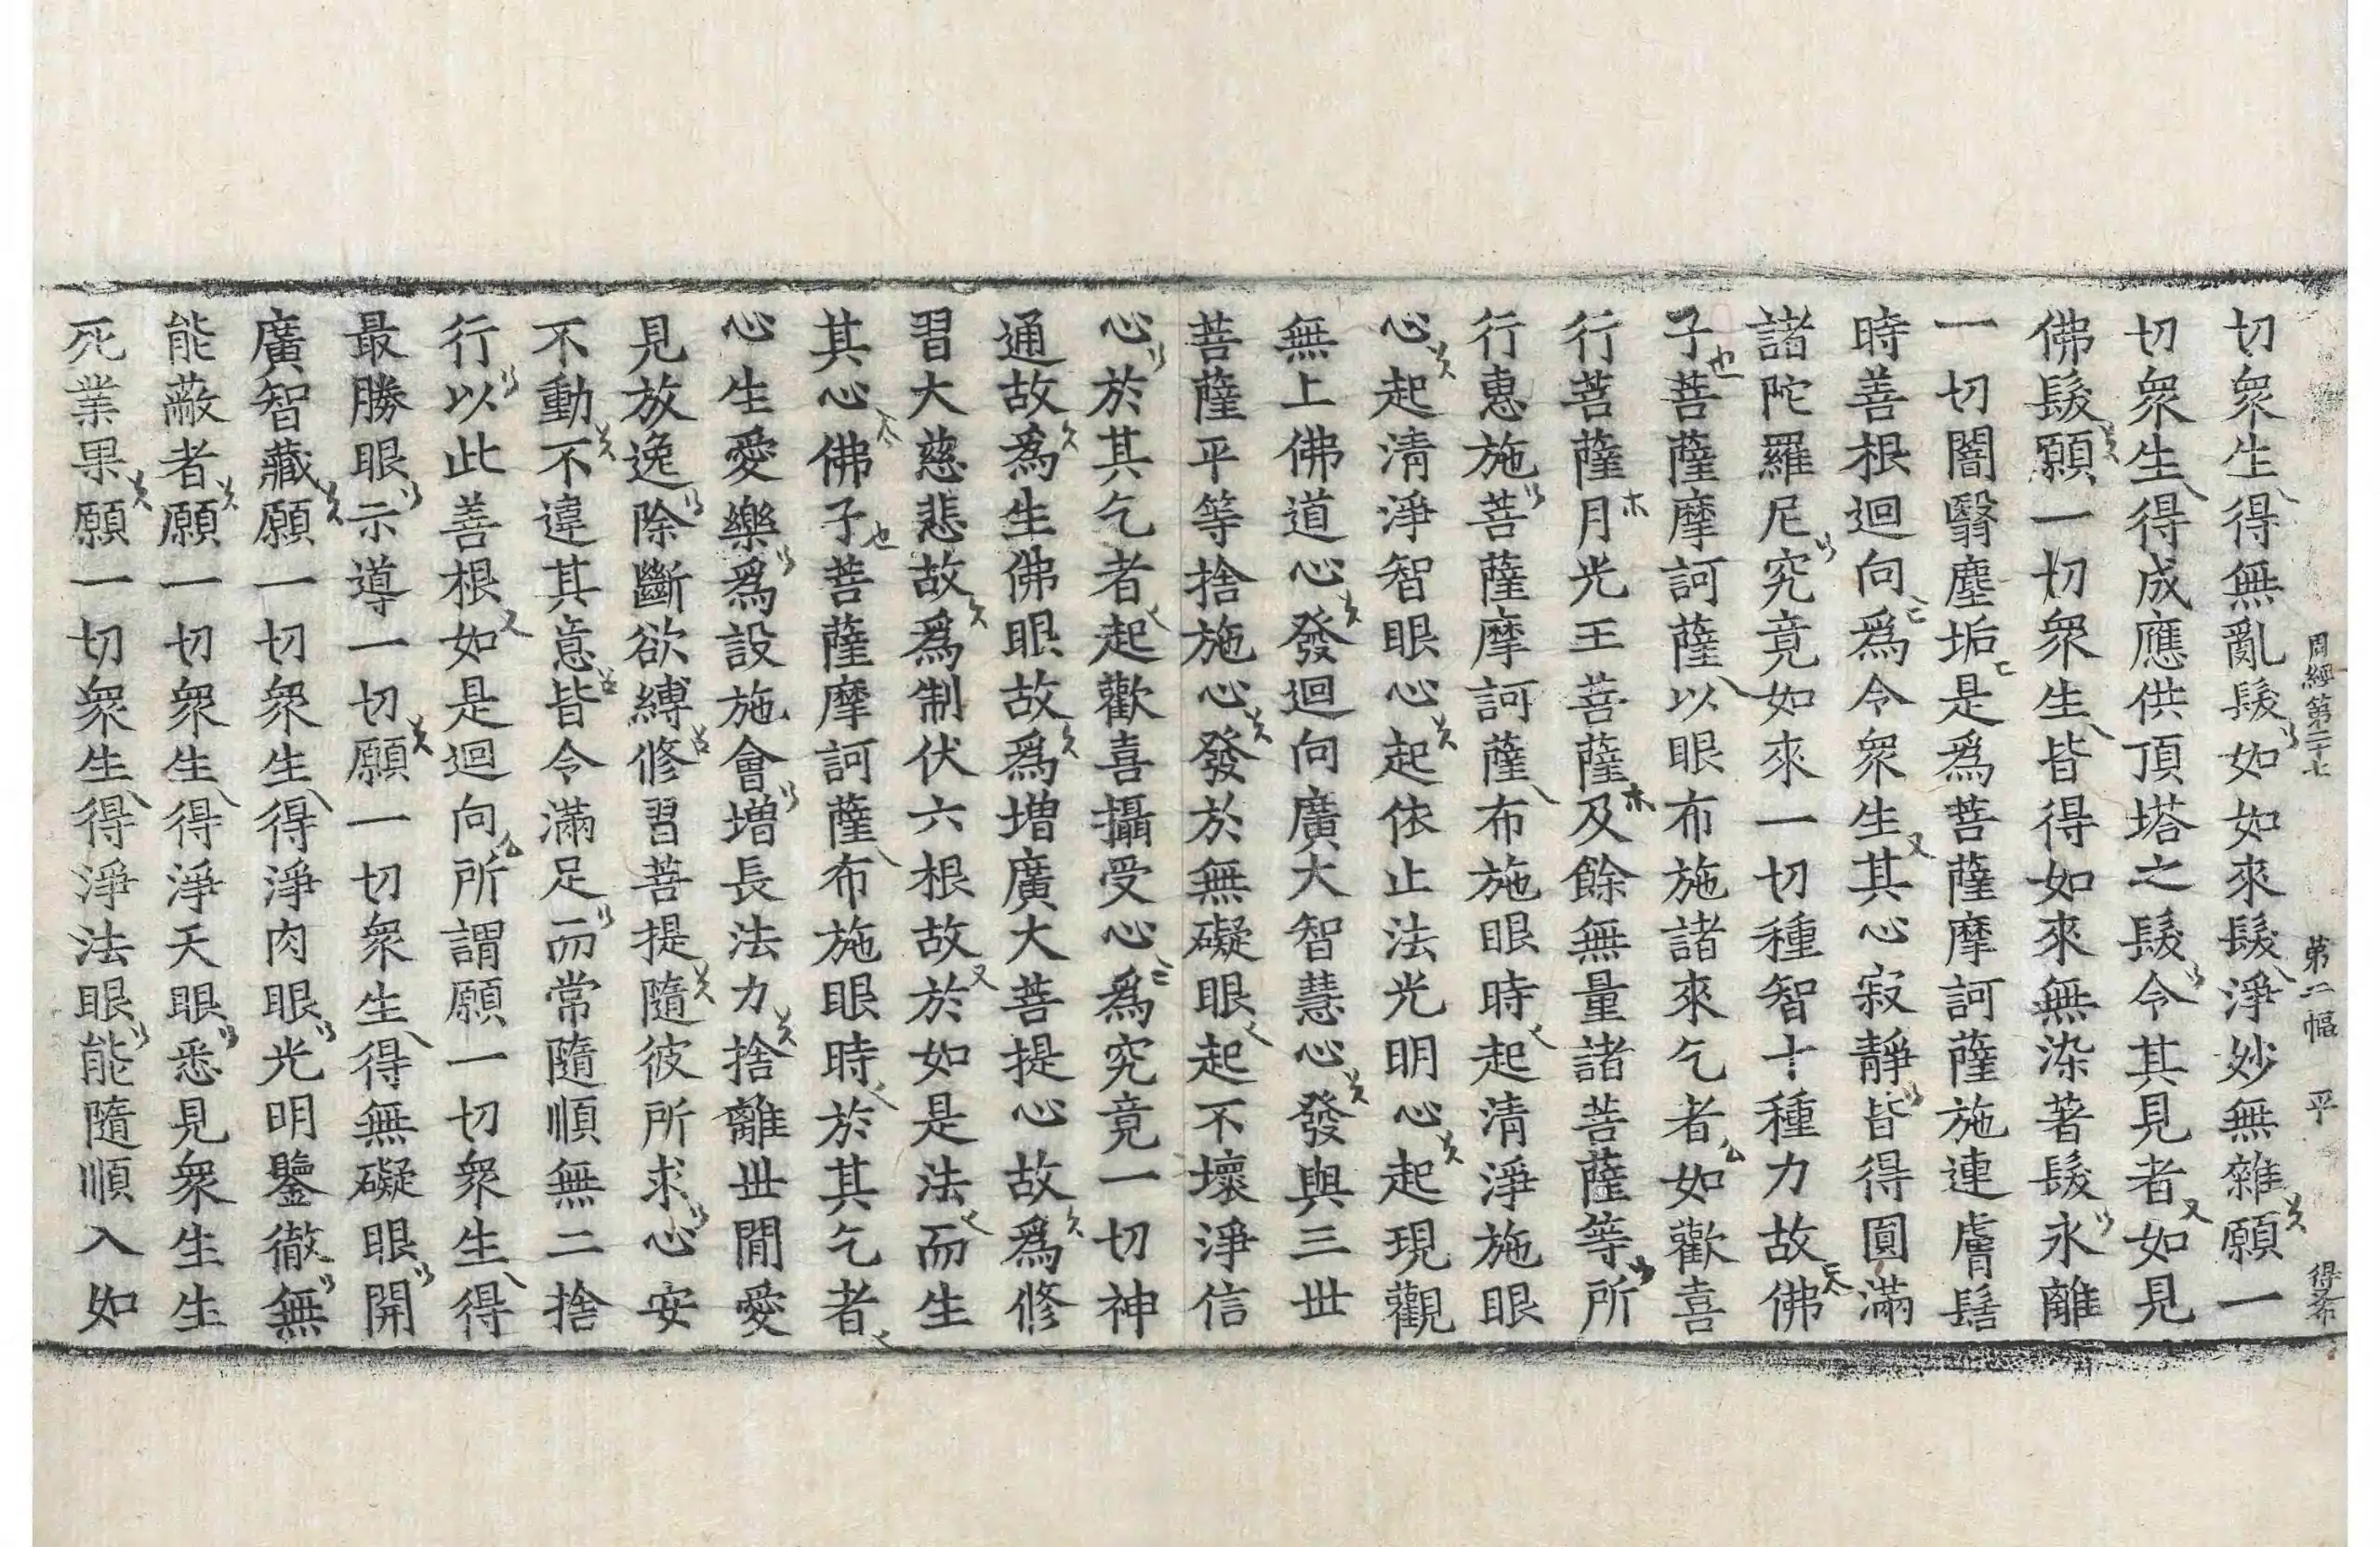 周經第二十七 第二幅 平 得
切衆生得無亂髮如如來髮淨妙無雜願一
切衆生得成應供頂塔之髮令其見者如見
佛髮願一切衆生皆得如來無染著髮永離
一切闇翳塵垢是爲菩薩摩訶薩施連膚髻
時善根迴向爲令衆生其心寂靜皆得圓滿
諸陀羅尼究竟如來一切種智十種力故佛
子菩薩摩訶薩以眼布施諸來乞者如歡喜
行菩薩月光王菩薩及餘無量諸菩薩等所
行惠施菩薩摩訶薩布施眼時起清淨施眼
心起清淨智眼心起依止法光明心起現觀
無上佛道心發迴向廣大智慧心發與三世
菩薩平等捨施心發於無礙眼起不壞淨信
心於其乞者起歡喜攝受心爲究竟一切神
通故爲生佛眼故爲增廣大菩提心故爲修
習大慈悲故爲制伏六根故於如是法而生
其心佛子菩薩摩訶薩布施眼時於其乞者
心生愛樂爲設施會增長法力捨離世閒愛
見放逸除斷欲縛修習菩提隨彼所求心安
不動不違其意皆令滿足而常隨順無二捨
行以此善根如是迴向所謂願一切衆生得
最勝眼示導一切願一切衆生得無礙眼開
廣智藏願一切衆生得淨肉眼光明鑒徹無
能蔽者願一切衆生得淨天眼悉見衆生生
死業果願一切衆生得淨法眼能隨順入如